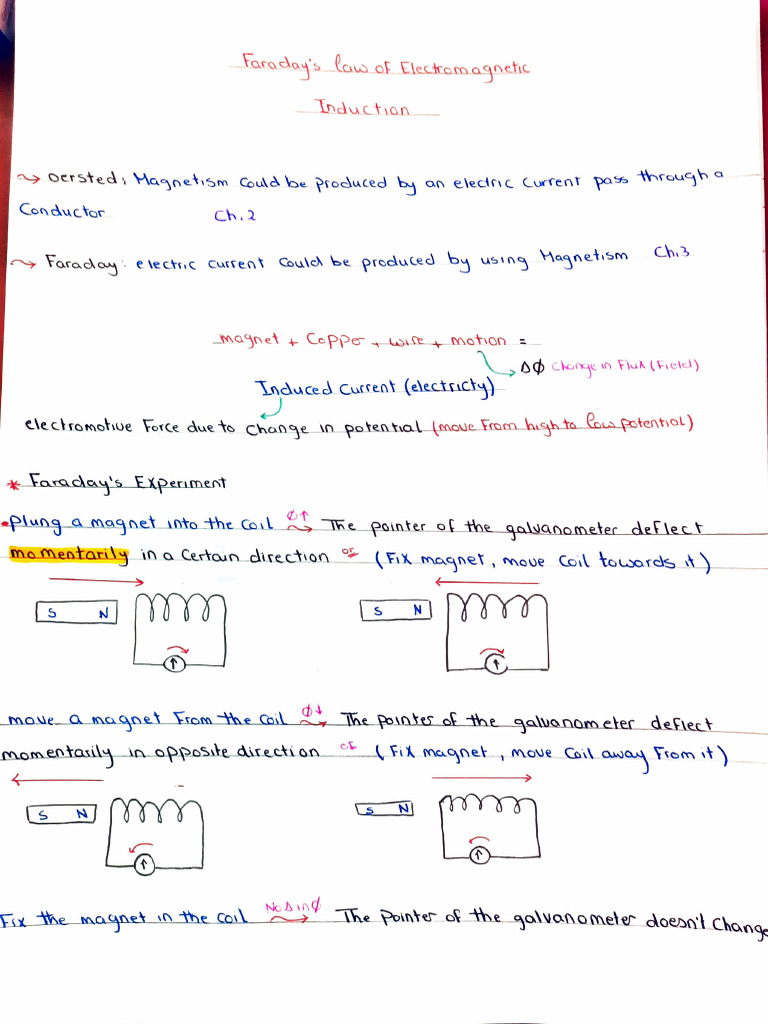 Faraday's law of Electromagnetic
Induction
↝ oersted: Magnetism could be produced by an electric current pass through a
Conductor Ch.2
↝ Faraday: electric current could be produced by using Magnetism Ch.3
magnet + Copper + wire + motion =
Δϕ change in Flux (Field)
Induced Current (electricty)
electromotive Force due to change in potential (move From high to low potential)
* Faraday's Experiment
• Plung a magnet into the coil ϕ↑ ↝ The pointer of the galvanometer deflect
momentarily in a certain direction or (Fix magnet, move coil towards it)
S N S N
move a magnet From the coil ϕ↓ ↝ The pointer of the galvanometer deflect
momentarily in opposite direction or (Fix magnet, move coil away From it)
S N S N
Fix the magnet in the coil No Δ in ϕ ↝ The pointer of the galvanometer doesn't change